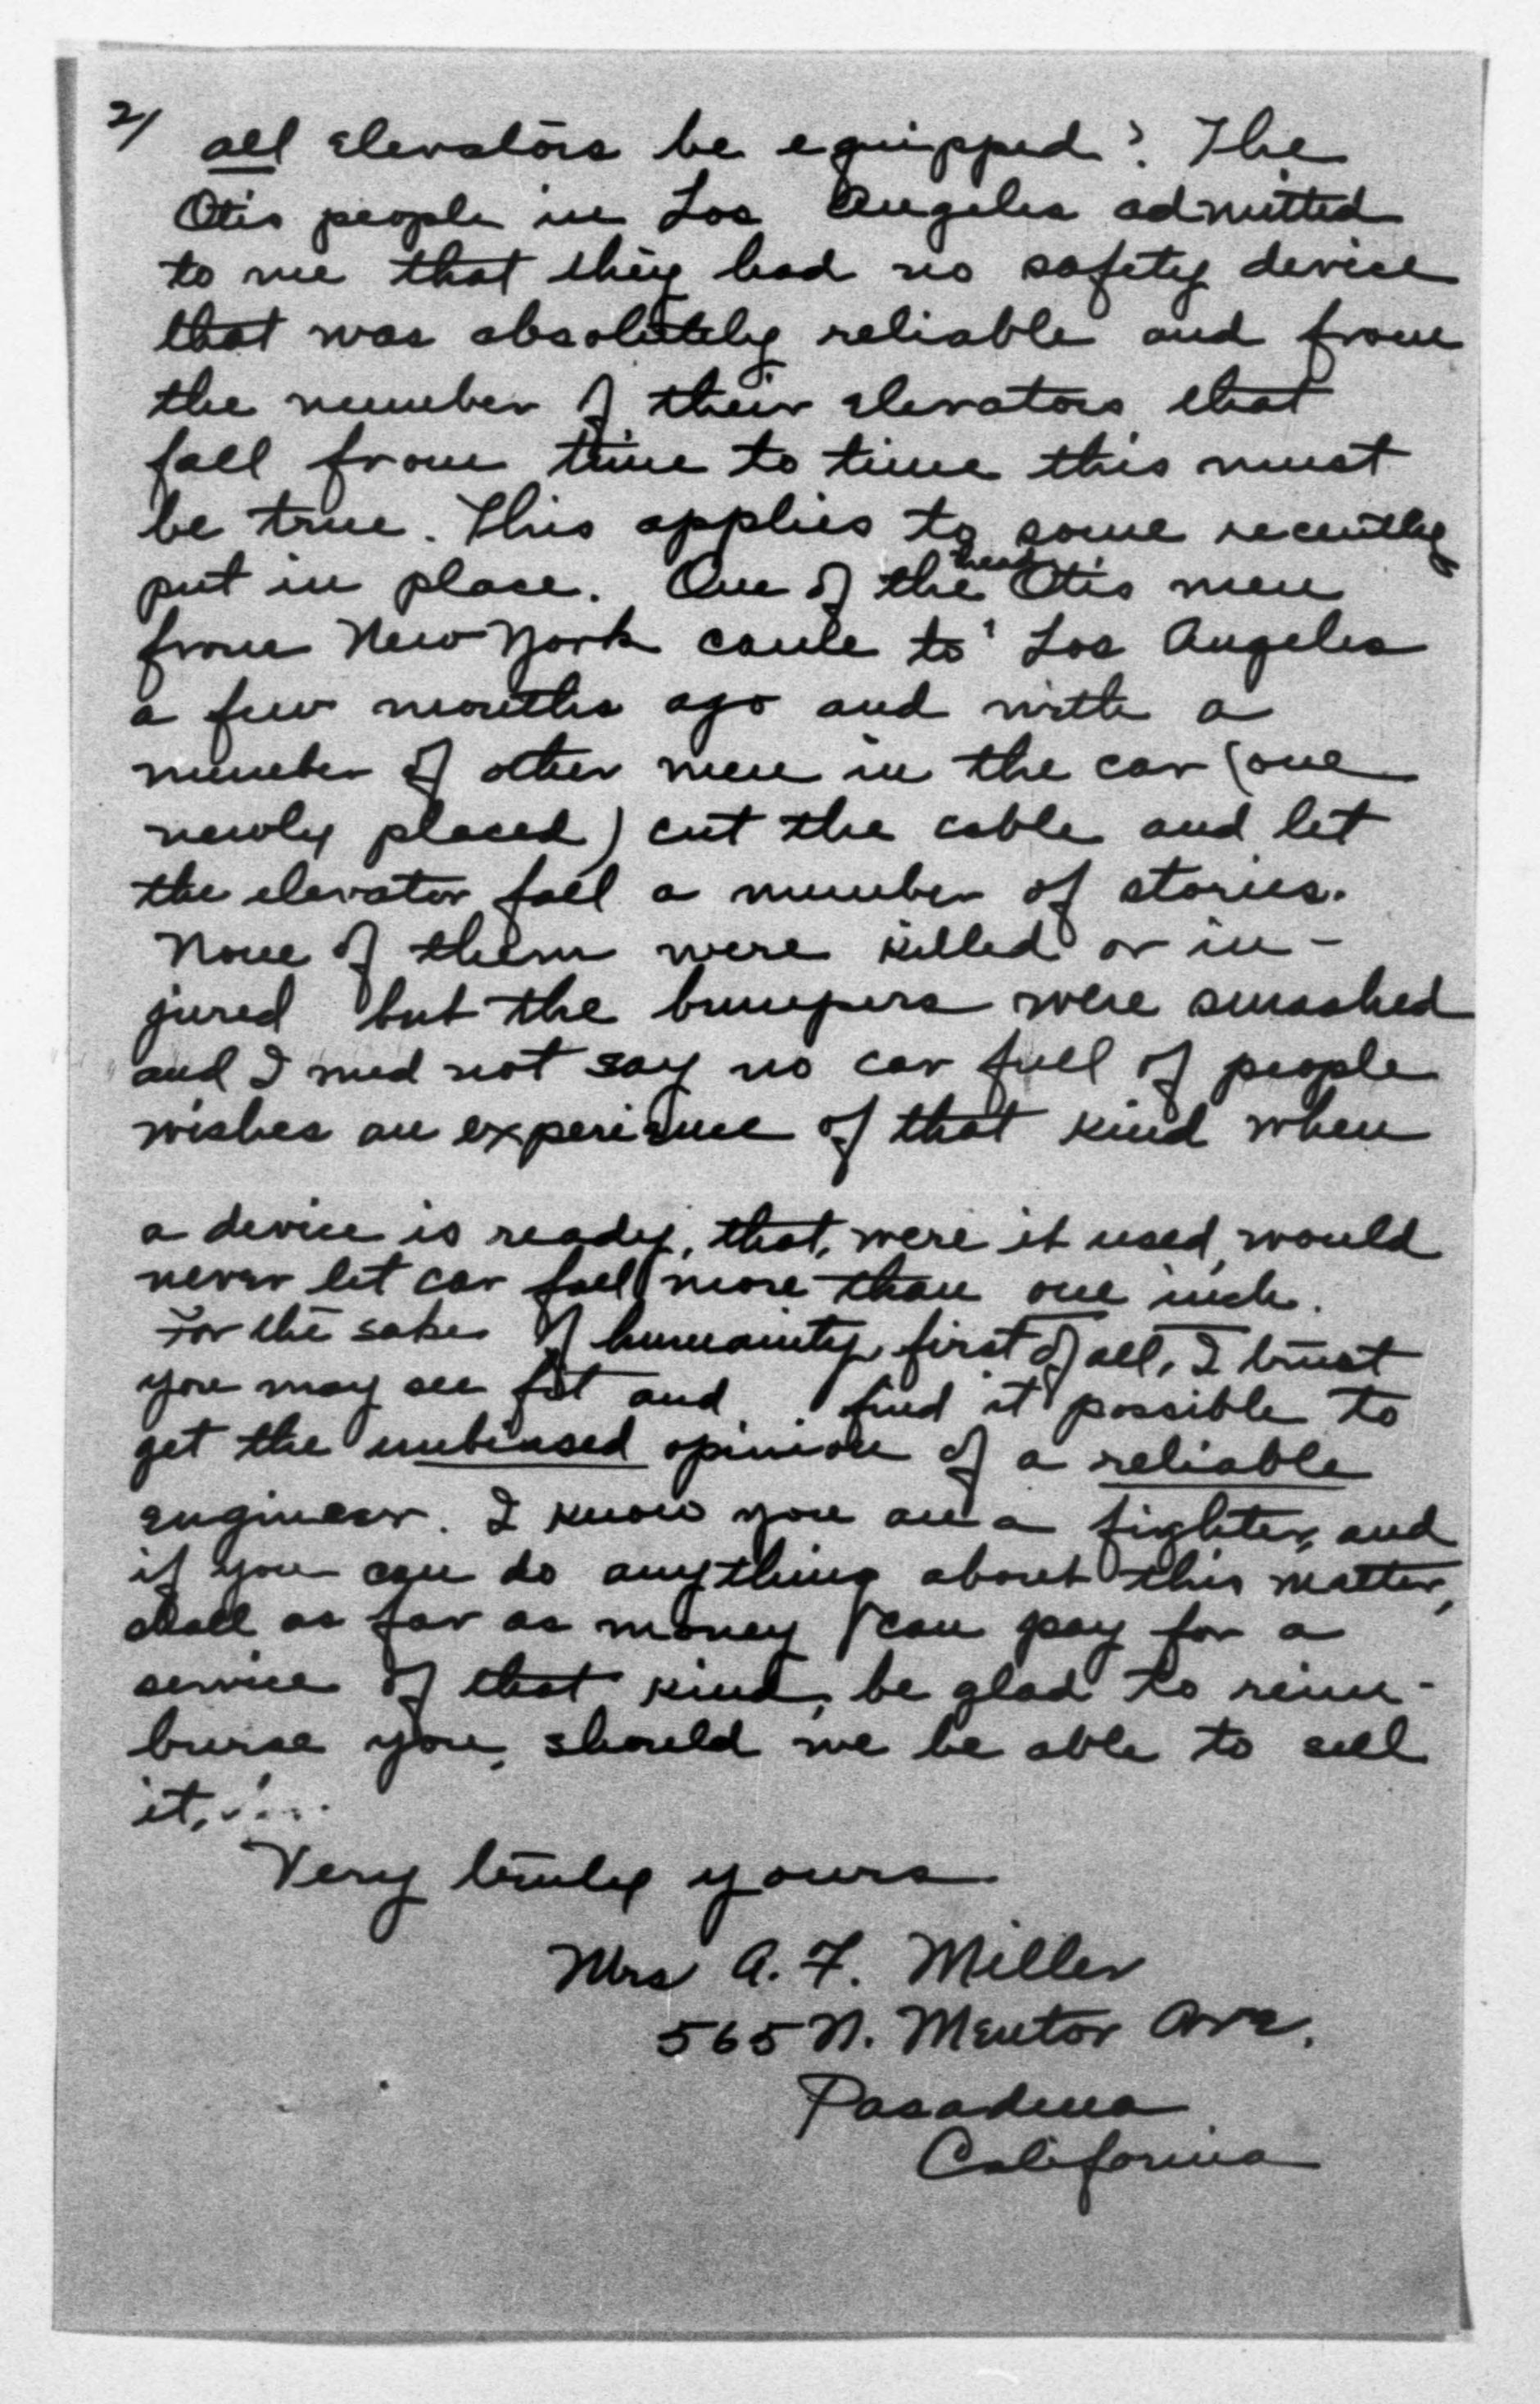 2/ all elevators be equipped? The
Otis people in Los Angeles admitted
to me that they had no safety device
that was absolutely reliable and from
the number of their elevators that
fall from time to time this must
be true. This applies to some recently
put in place. One of the head Otis men
from New York came to Los Angeles
a few months ago and with a
number of other men in the car (one
newly placed) cut the cable and let
the elevator fall a number of stories.
None of them were killed or in-
jured but the bumpers were smashed
and I need not say no car full of people
wishes an experience of that kind when
a device is ready, that, were it used, would
never let car fall more than one inch.
For the sake of humanity, first of all, I trust
you may see fit and find it possible to
get the unbiased opinion of a reliable
engineer. I know you are a fighter, and
if you can do anything about this matter,
shall as far as money can pay for a
service of that kind, be glad to reim-
burse you, should we be able to sell
it.
Very truly yours
Mrs A. F. Miller
565 N. Mentor Ave.
Pasadena
California